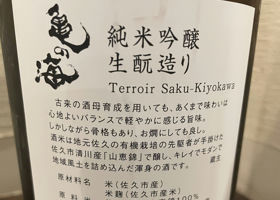 亀の海
純米吟醸
生酛造り
Terroir Saku-Kiyokawa
古来の酒母育成を用いても、あくまで味わいは
心地よいバランスで軽やかに感じる旨味。
しかしながら骨格もあり、お燗にしても良し。
酒米は地元佐久の有機栽培の先駆者が手掛けた
佐久市清川産「山恵錦」で醸し、キレイでモダンで
地域風土を詰め込んだ渾身の酒です。
蔵主
原材料名
米(佐久市産)
米麹(佐久市産米)
100%